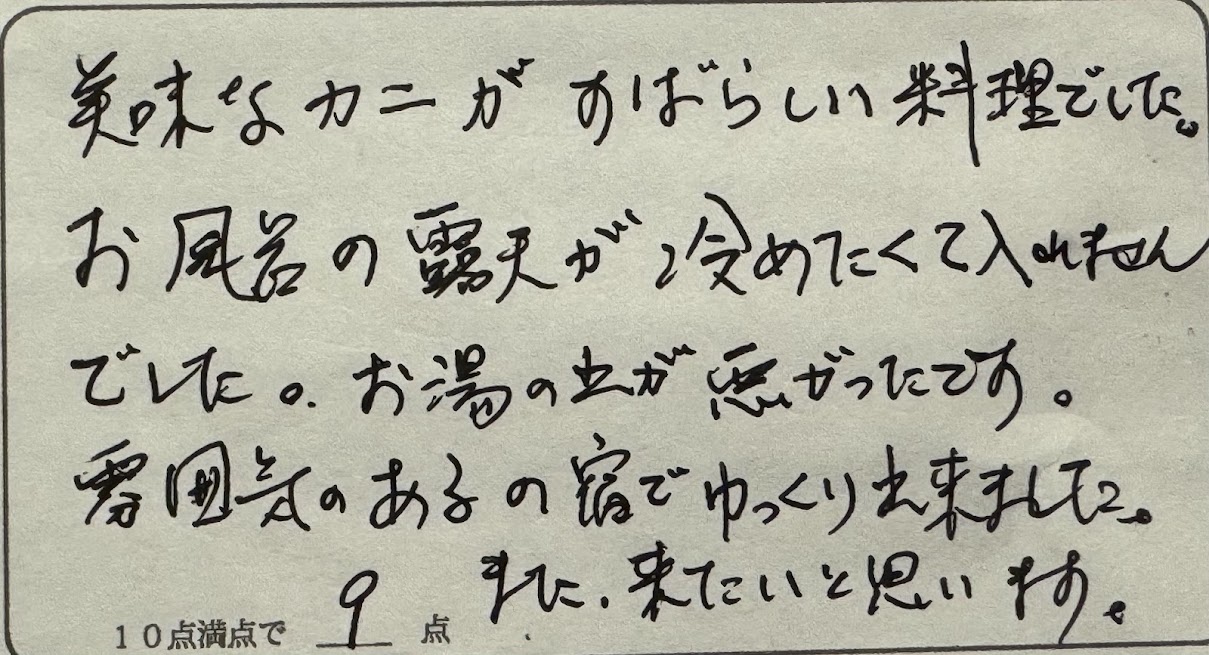 美味なカニがすばらしい料理でした。
お風呂の露天が冷めたくて入れません
でした。お湯の出が悪がったです。
雰囲気のあるの宿でゆっくり出来ました。
また、来たいと思います。
10点満点で 9 点